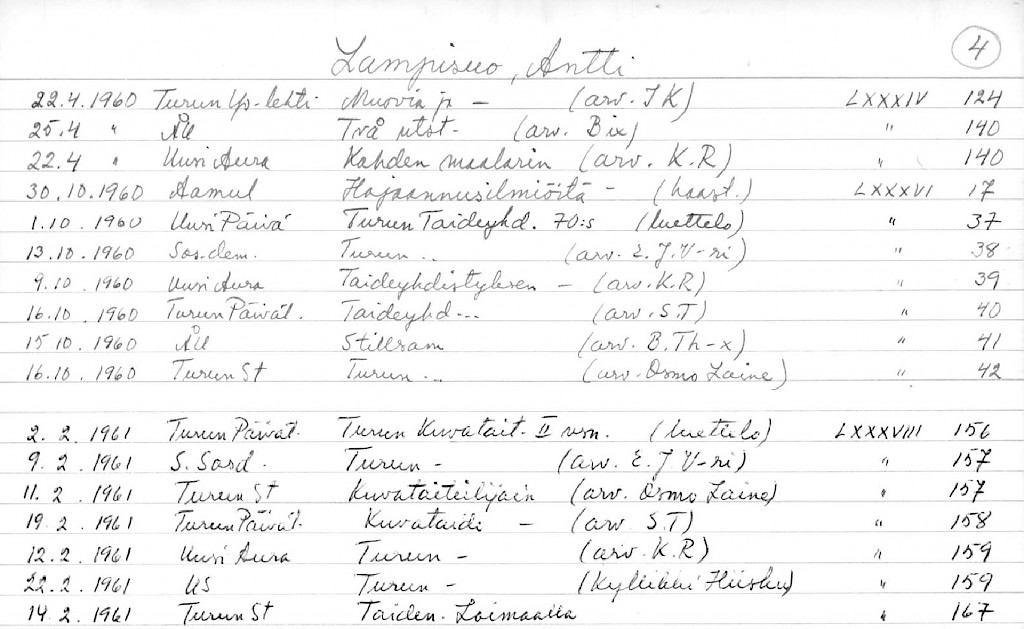 4
Lampisuo, Antti
22.4.1960 Turun Yo-lehti Muovia ja — (arv. J K) LXXXIV 124
25.4 " ÅU Två utst- (arv. B ix) " 140
22.4 " Uusi Aura Kahden maalarin (arv. K.R) " 140
30.10.1960 Aamul Hajaannusilmiöitä — (haast.) LXXXVI 17
1.10.1960 Uusi Päivä Turun Taideyhd. 70:s (luettelo) " 37
13.10.1960 Sos.dem. Turun .. (arv. E.J.V-ri) " 38
9.10.1960 Uusi Aura Taideyhdistyksen — (arv. K.R) " 39
16.10.1960 Turun Päivät. Taideyhd--- (arv. S.T) " 40
15 10.1960 ÅU Stillsam (arv. B.Th-x) " 41
16.10.1960 Turun St Turun ... (arv. Osmo Laine) " 42
2.2.1961 Turun Päivät. Turun Kuvatait- II vsn. (luettelo) LXXXVIII 156
9.2.1961 S. Sosd. Turun - (arv. E.J V-ri) " 157
11.2.1961 Turun St Kuvataiteilijain (arv. Osmo Laine) " 157
19.2.1961 Turun Päivät. Kuvataide — (arv S.T) " 158
12.2.1961 Uusi Aura Turun - (arv. K.R) " 159
22.2.1961 US Turun - (Kyllikki Hiisku) " 159
14.2.1961 Turun St Taiden. Loimaalla " 167